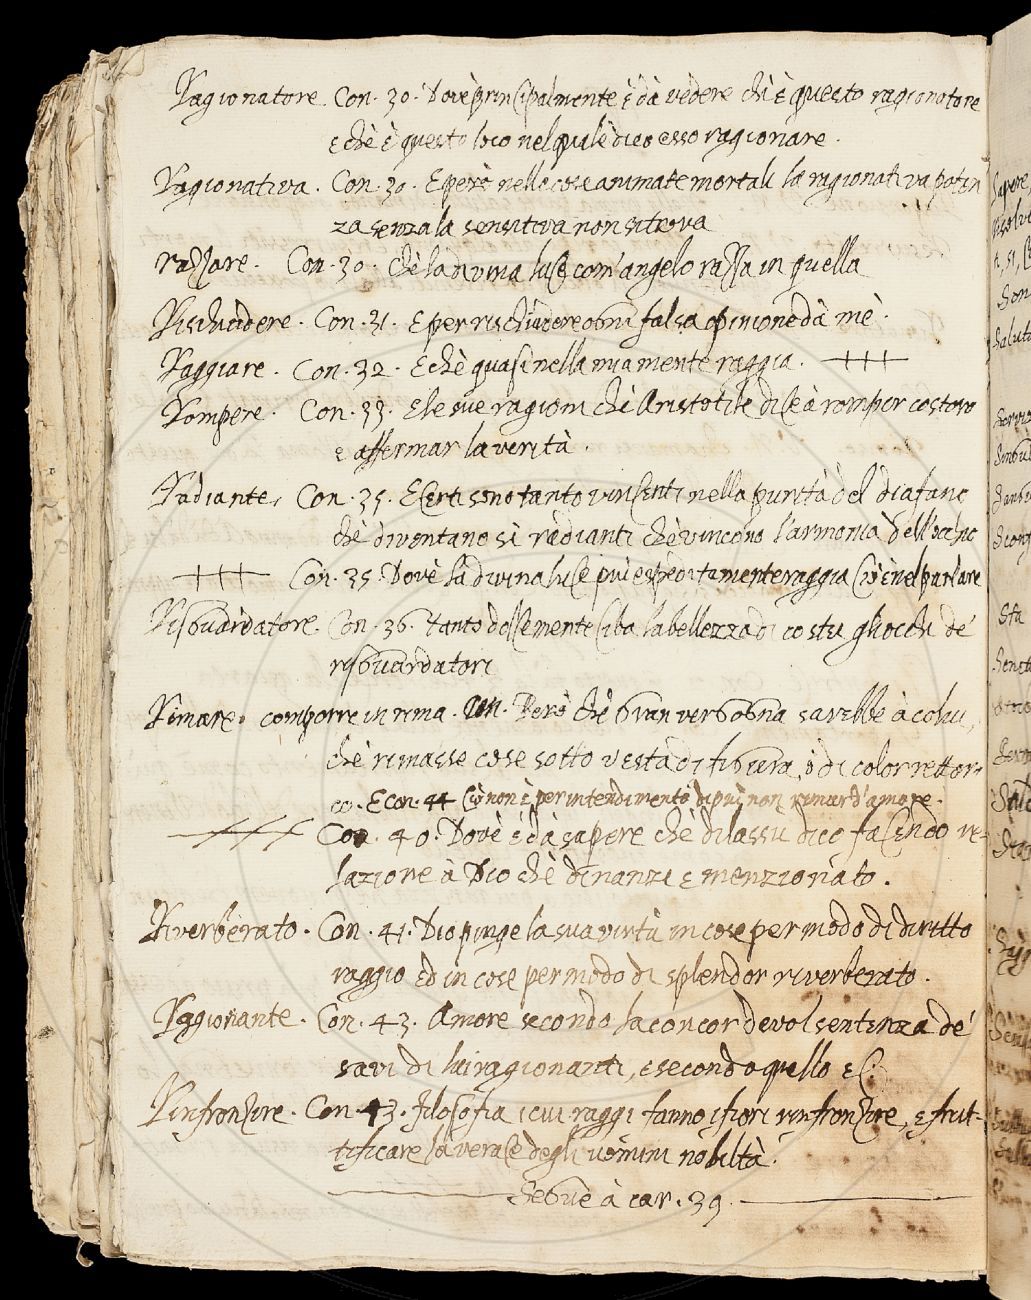 Ragionatore. Con. 30. Dov'è principalmente è dà vedere chi è questo ragionatore
e chè è questo loco nel quale dico esso ragionare.
Ragionativa. Con. 30. E però nelle cose animate mortali la ragionativa poten
za senza la sensitiva non si trova
razzare. Con. 30. chè la divina luce com' angelo razza in quella
Rischiudere. Con. 31. E per rischiudere ogni falsa opinione dà mè.
Raggiare. Con. 32. E chè quasi nella mia mente raggia.
Rompere. Con. 33. E le sue ragioni chè Aristotile dice à romper costoro
e affermar la verità.
Radiante. Con. 35. E certi sono tanto vincenti nella purità del diafano
chè diventano sì radianti chè vincono l'armonia dell'ochio
Con. 35. Dov'è la divina luce più espeditamente raggia ciò è nel parlare
Risguardatore. Con. 36. tanto dolcemente ciba la bellezza di costu gliocchi de'
risguardatori
Rimare. comporre in rima. Con. Però chè gran vergogna sarebbe à colui,
chè rimasse cose sotto vesta di figura, ò di color rettori
co. E con. 44 Ciò non è per intendimento di più non rimar d'amore.
Con. 40. Dov'è è dà sapere chè di lassù dico facendo re-
lazione à Dio chè dinanzi è menzionato.
Riverberato. Con. 41. Dio pinge la sua virtù in cose per modo di diritto
raggio ed in cose per modo di splendor riverberato.
Raggionante. Con. 43. Amore secondo la concordevol sentenza de'
savi di lui ragionanti, e secondo quello ec.
Rinfronzire. Con. 43. filosofia i cui raggi fanno i fiori rinfronzire, e frut-
tificare la verace degli uomini nobiltà.
Segue à car. 39.